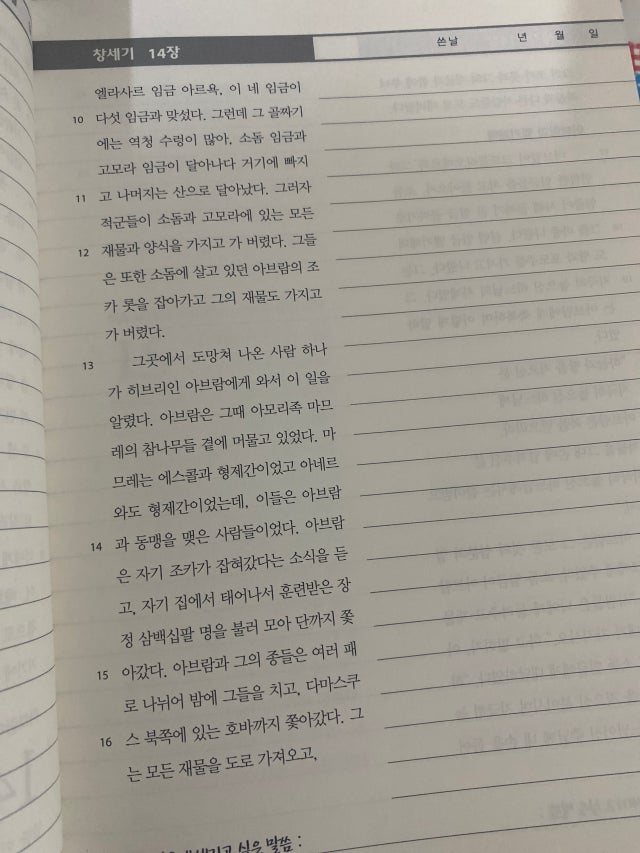 창세기 14장
쓴날 년 월 일
엘라사르 임금 아르욕, 이 네 임금이
10 다섯 임금과 맞섰다. 그런데 그 골짜기
에는 역청 수렁이 많아, 소돔 임금과
고모라 임금이 달아나다 거기에 빠지
11 고 나머지는 산으로 달아났다. 그러자
적군들이 소돔과 고모라에 있는 모든
12 재물과 양식을 가지고 가 버렸다. 그들
은 또한 소돔에 살고 있던 아브람의 조
카 롯을 잡아가고 그의 재물도 가지고
가 버렸다.
13 그곳에서 도망쳐 나온 사람 하나
가 히브리인 아브람에게 와서 이 일을
알렸다. 아브람은 그때 아모리족 마므
레의 참나무들 곁에 머물고 있었다. 마
므레는 에스콜과 형제간이었고 아네르
와도 형제간이었는데, 이들은 아브람
14 과 동맹을 맺은 사람들이었다. 아브람
은 자기 조카가 잡혀갔다는 소식을 듣
고, 자기 집에서 태어나서 훈련받은 장
정 삼백십팔 명을 불러 모아 단까지 쫓
15 아갔다. 아브람과 그의 종들은 여러 패
로 나뉘어 밤에 그들을 치고, 다마스쿠
16 스 북쪽에 있는 호바까지 쫓아갔다. 그
는 모든 재물을 도로 가져오고,
싶은 말씀 :